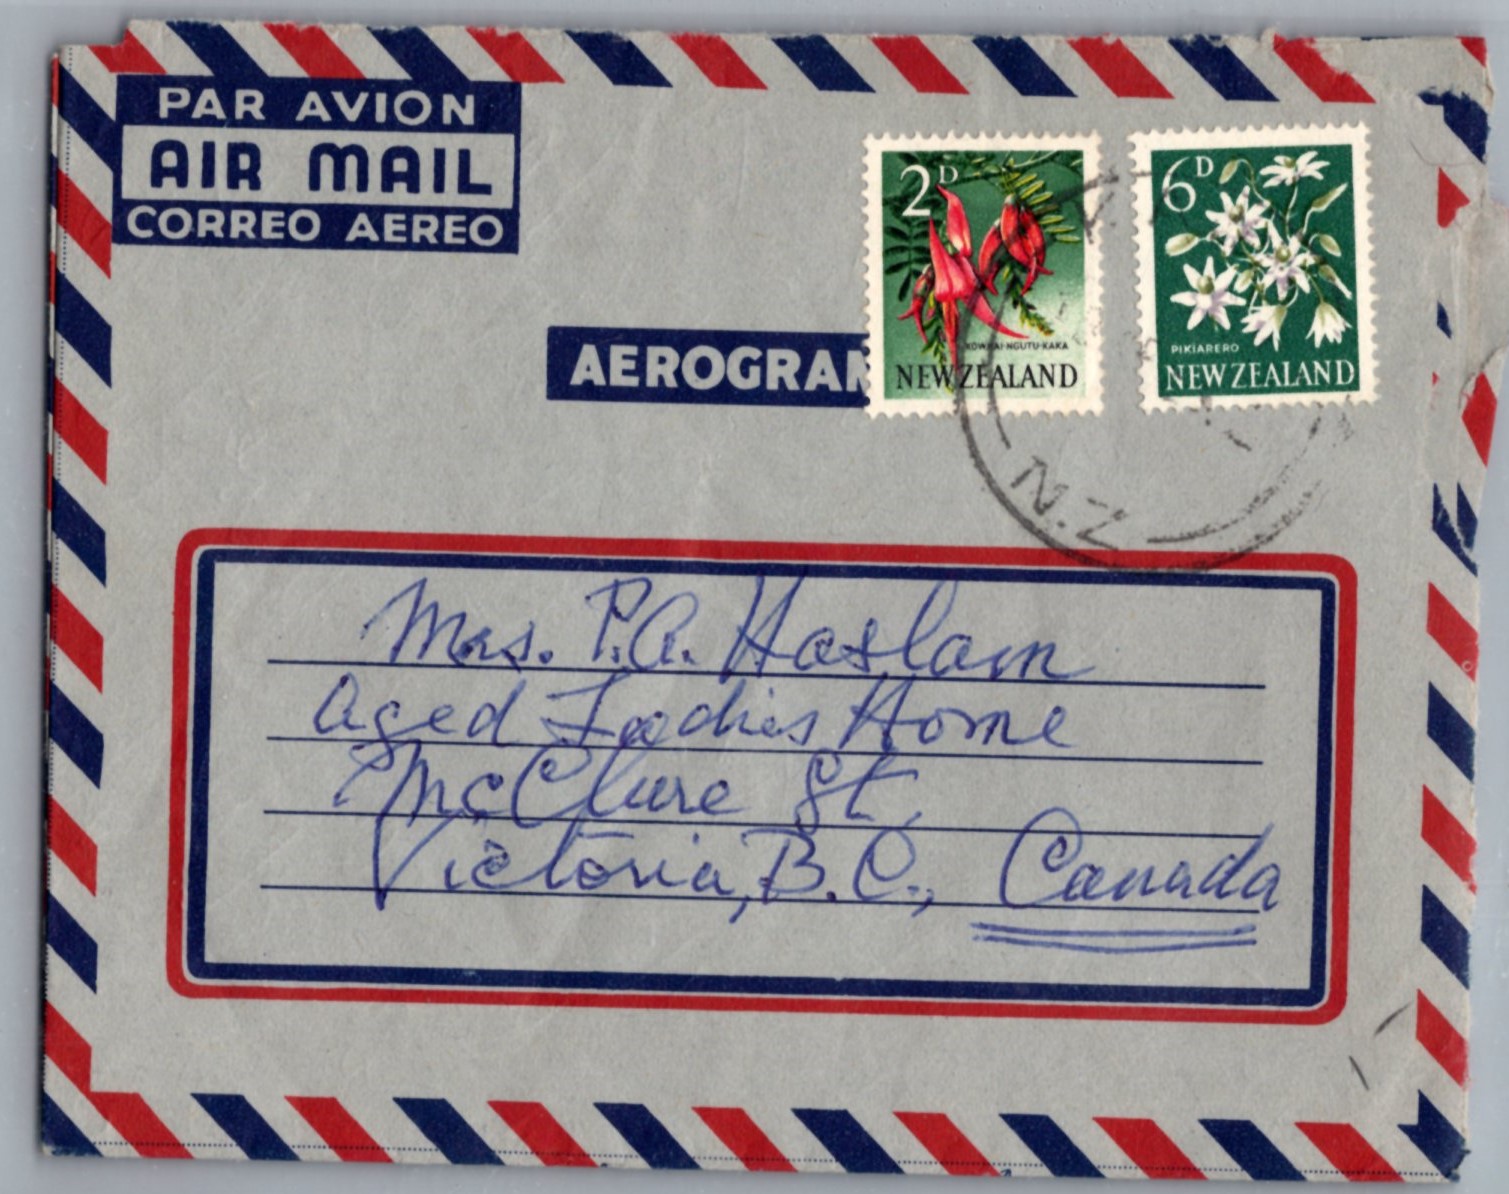 PAR AVION
AIR MAIL
CORREO AEREO
AEROGRAM
2D
KOWHAI-NGUTU-KAKA
NEW ZEALAND
6D
PIKIARERO
NEW ZEALAND
N.Z.
Mrs. P.A. Haslam
Aged Ladies Home
McClure St.
Victoria, B.C., Canada